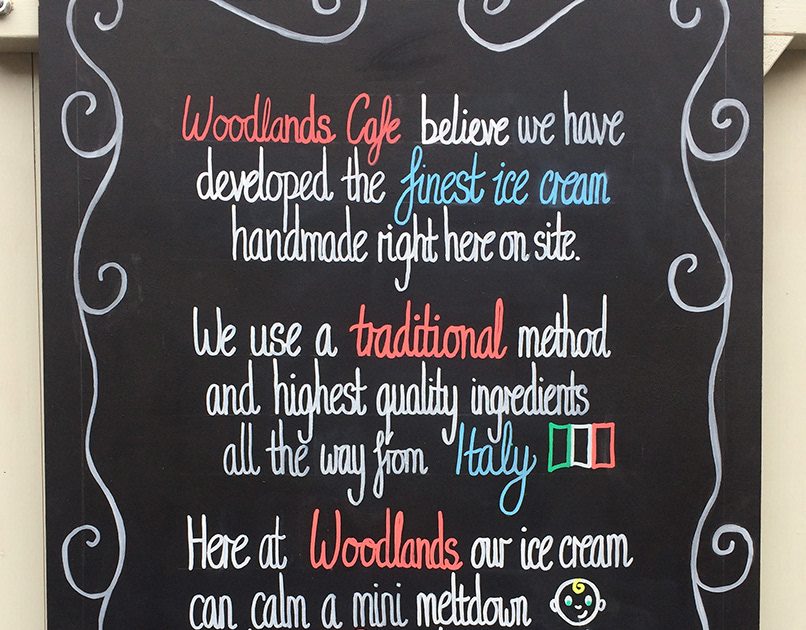 Woodlands Cafe believe we have
developed the finest ice cream
handmade right here on site.
We use a traditional method
and highest quality ingredients
all the way from Italy
Here at Woodlands our ice cream
can calm a mini meltdown